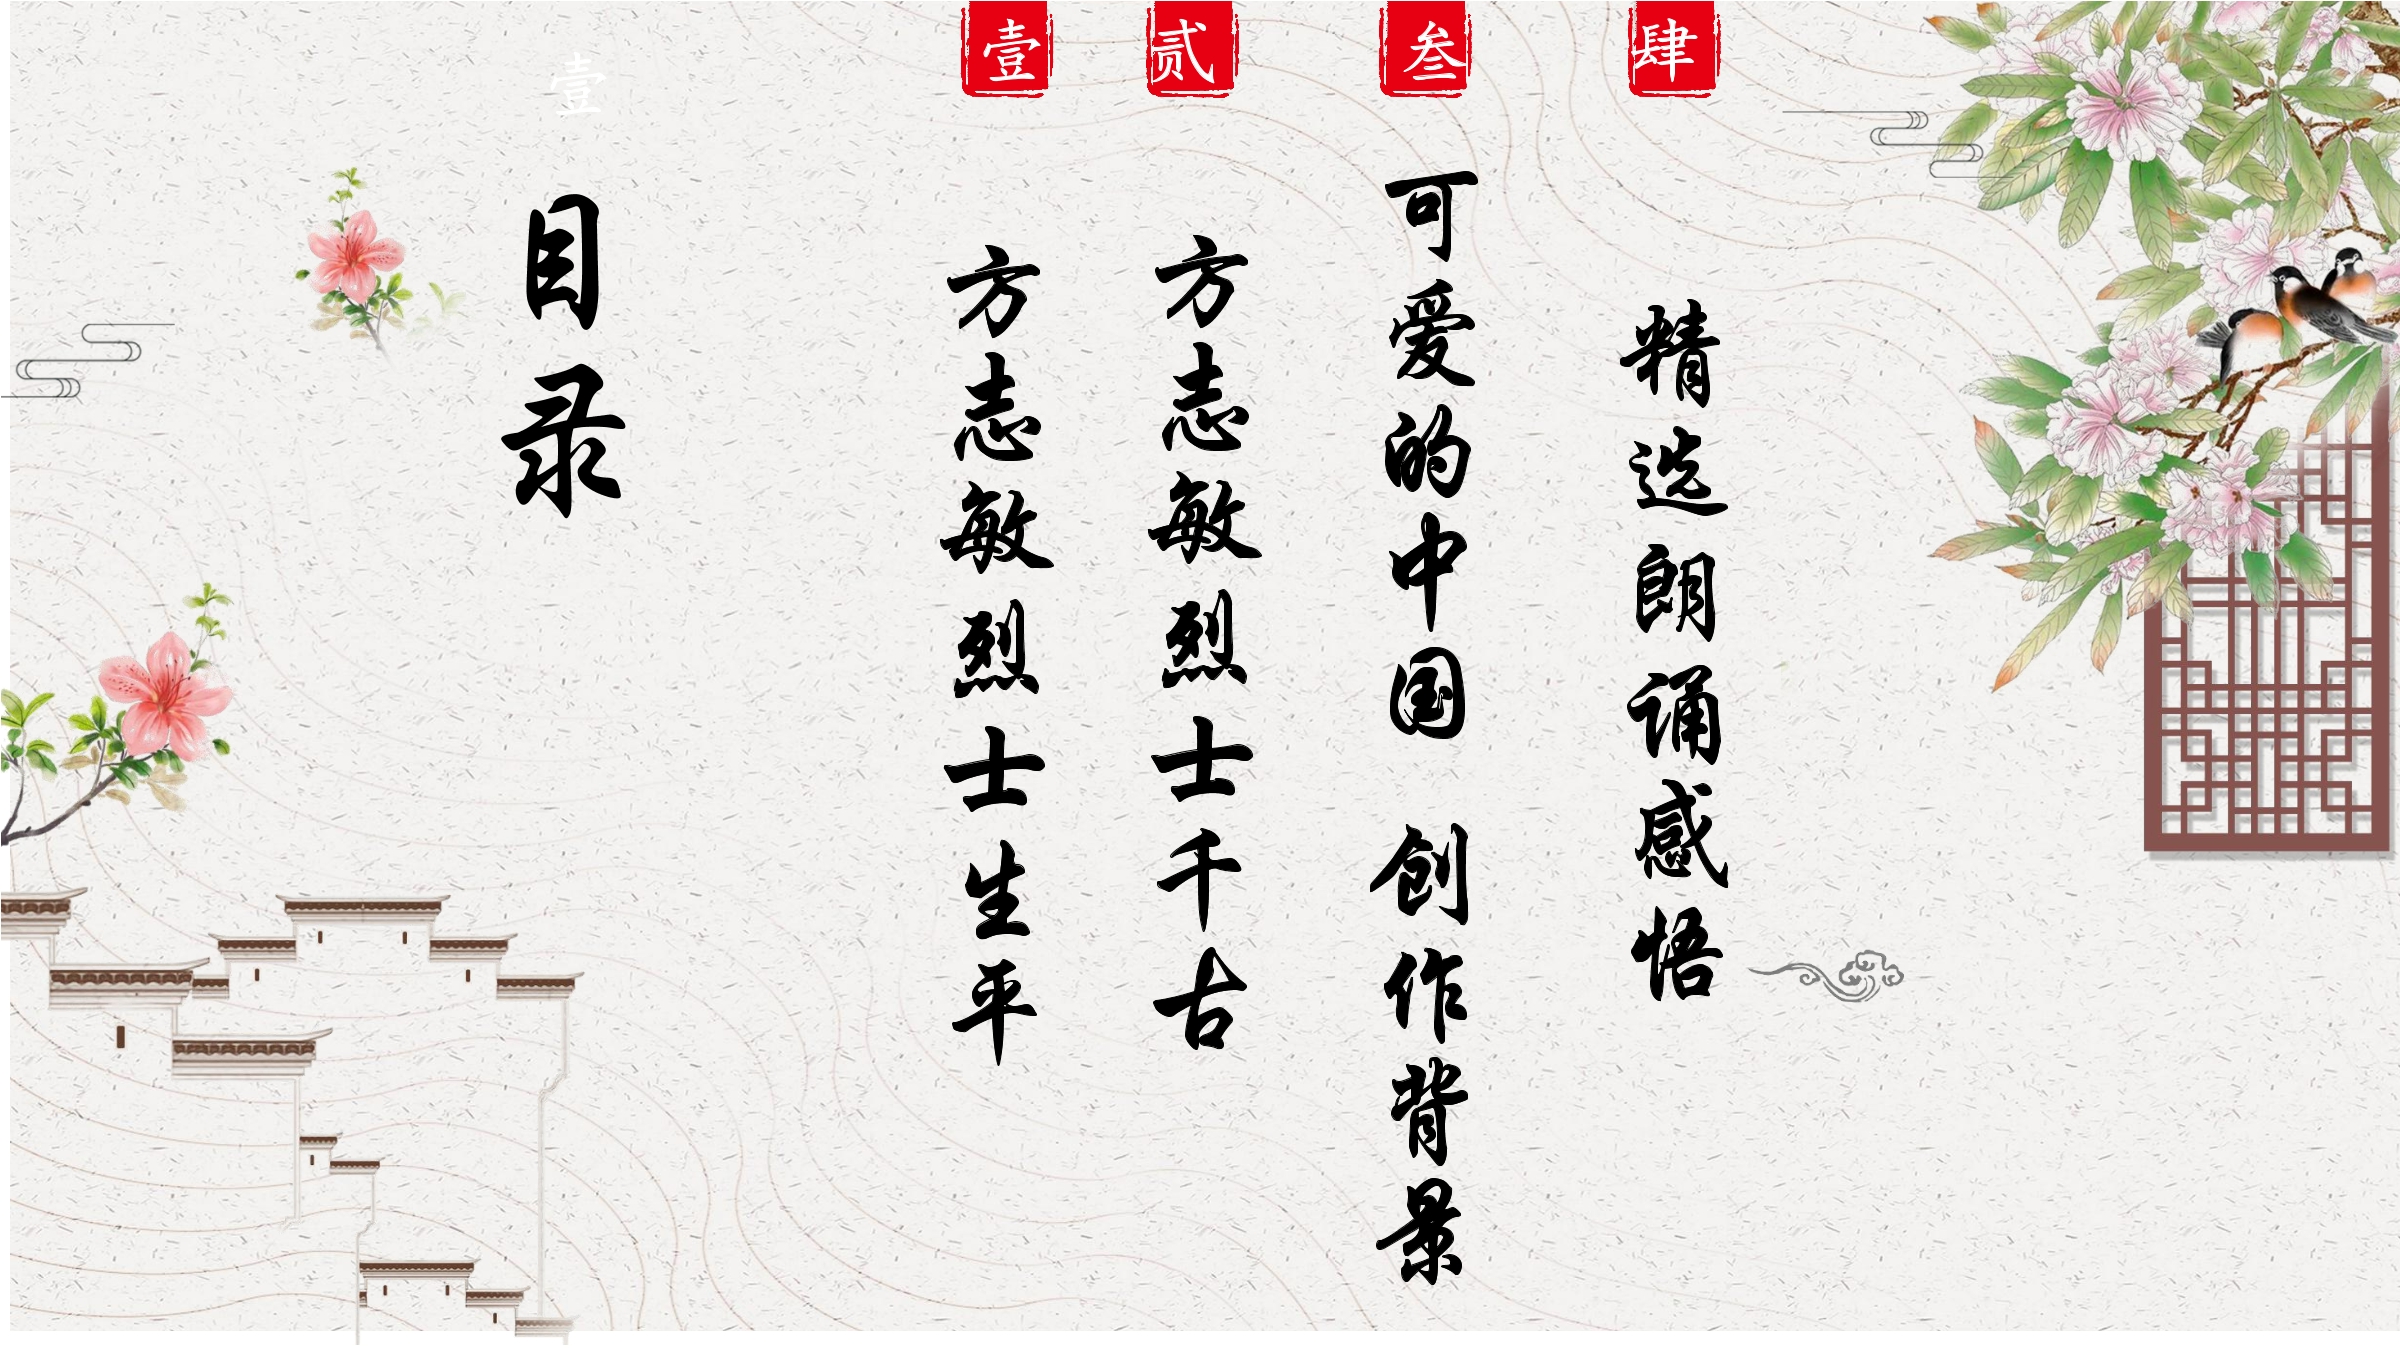 壹
目录
壹
方志敏烈士生平
贰
方志敏烈士千古
叁
可爱的中国 创作背景
肆
精选朗诵感悟